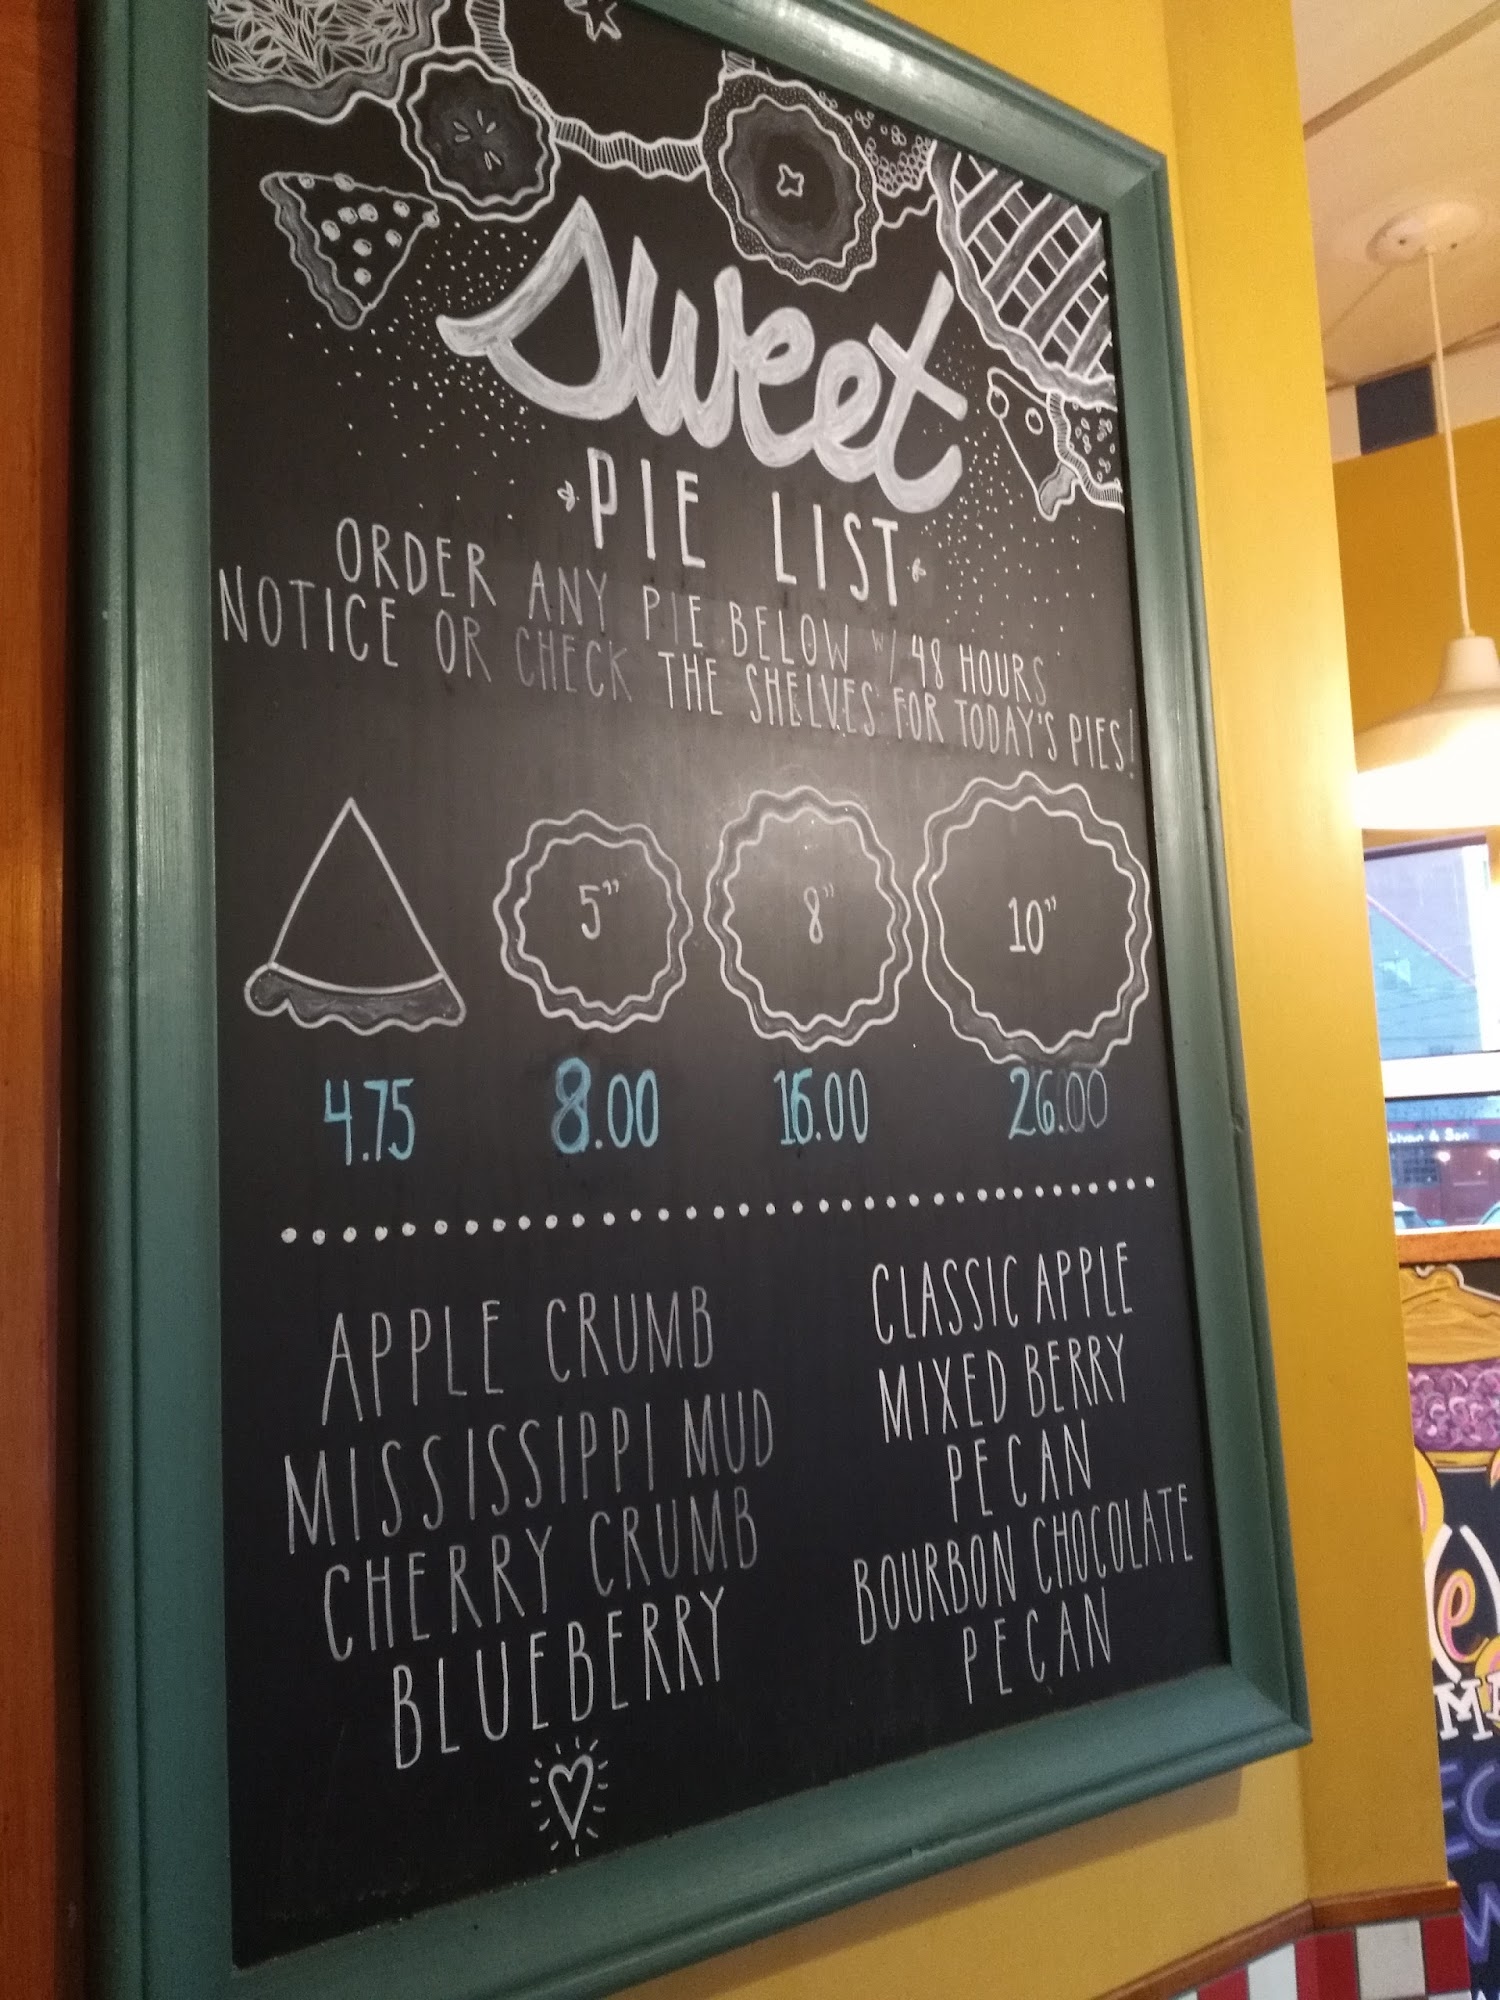 Sweet
PIE LIST
ORDER ANY PIE BELOW W/ 48 HOURS
NOTICE OR CHECK THE SHELVES FOR TODAY'S PIES!
5" 8" 10"
4.75 8.00 16.00 26.00
APPLE CRUMB
MISSISSIPPI MUD
CHERRY CRUMB
BLUEBERRY
CLASSIC APPLE
MIXED BERRY
PECAN
BOURBON CHOCOLATE
PECAN